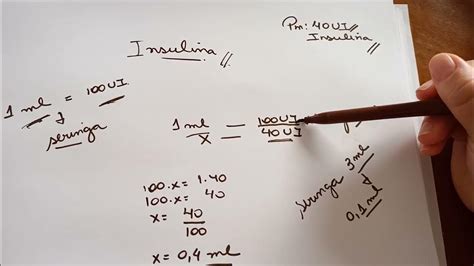 Pm: 40UI
Insulina
Insulina
1 ml = 100UI
seringa
1 ml = 100UI
x 40UI
100.x = 1.40
100.x = 40
x = 40
100
x = 0,4 ml
seringa 3ml
0,1 ml